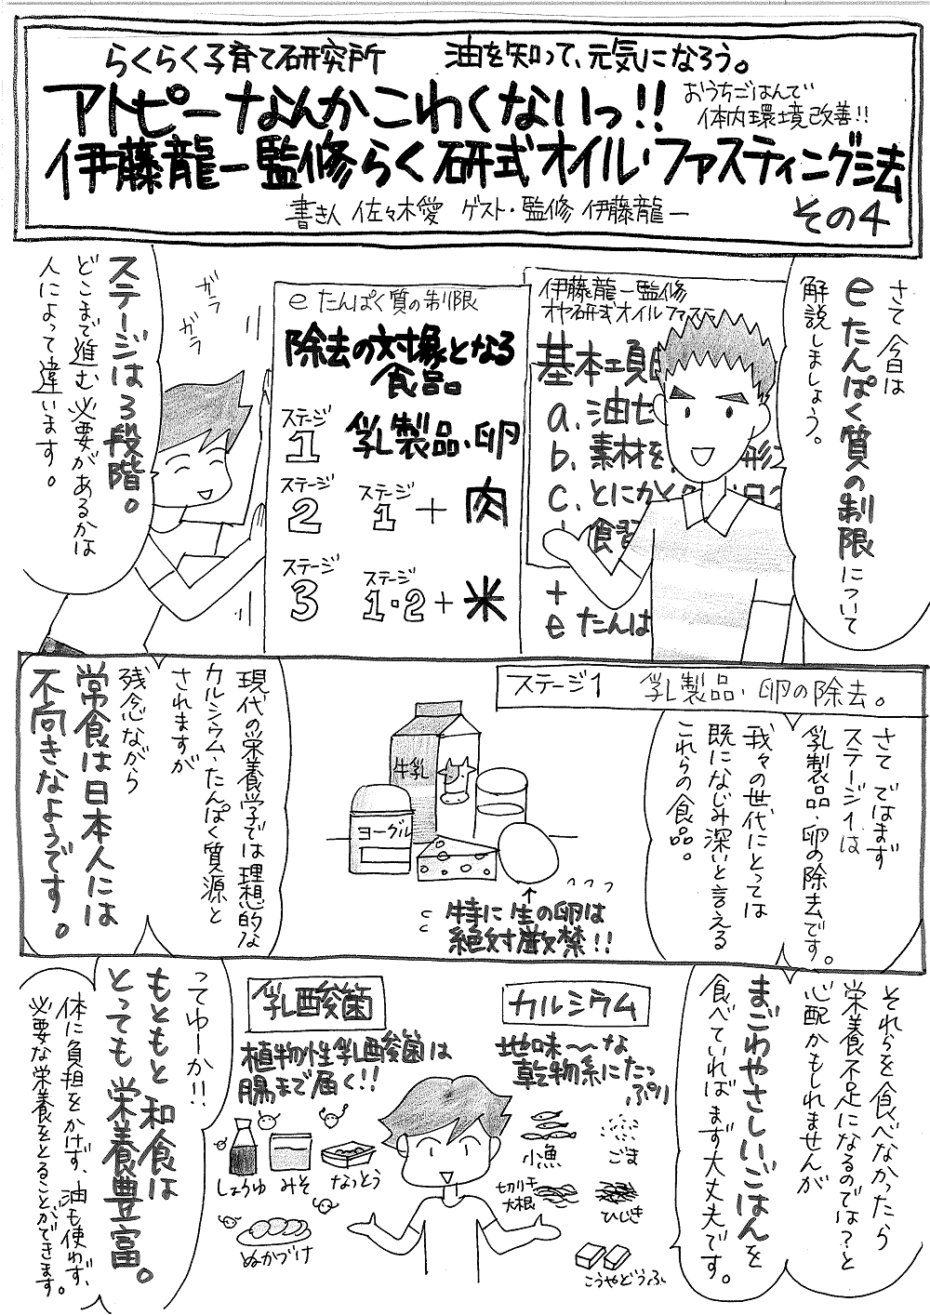 らくらく子育て研究所 油を知って、元気になろう。
アトピーなんかこわくないっ!!
おうちごはんで
体内環境改善!!
伊藤龍一監修らく研式オイル・ファスティング法
書き人 佐々木愛 ゲスト・監修 伊藤龍一
その4
さて今日は
eたんぱく質の制限について
解説しましょう。
伊藤龍一監修
基本項
a.油
b.素材を
c.とにかく
食
+
e たんぱ
e たんぱく質の制限
除去の対象となる
食品。
ステージ
1 乳製品・卵
ステージ
2 ステージ1+肉
ステージ
3 ステージ1・2+米
ガラ
ガラ
ステージは3段階。
どこまで進む必要があるかは
人によって違います。
ステージ1 乳製品・卵の除去。
さて ではまず
ステージ1は
乳製品・卵の除去です。
我々の世代にとっては
既になじみ深いと言える
これらの食品。
牛乳
ヨーグル
特に生の卵は
絶対厳禁!!
現代の栄養学では理想的な
カルシウム・たんぱく質源と
されますが
残念ながら
常食は日本人には
不向きなようです。
それらを食べなかったら
栄養不足になるのでは?と
心配かもしれませんが
まごわやさしいごはんを
食べていればまず大丈夫です。
カルシウム
地味〜な
乾物系にたっ
ぷり
小魚
ごま
切り干
大根
ひじき
こうやどうふ
乳酸菌
植物性乳酸菌は
腸まで届く!!
しょうゆ
みそ
なっとう
ぬかづけ
ってゆーか!!
もともと和食は
とっても栄養豊富。
体に負担をかけず、油も使わず、
必要な栄養をとることができます。